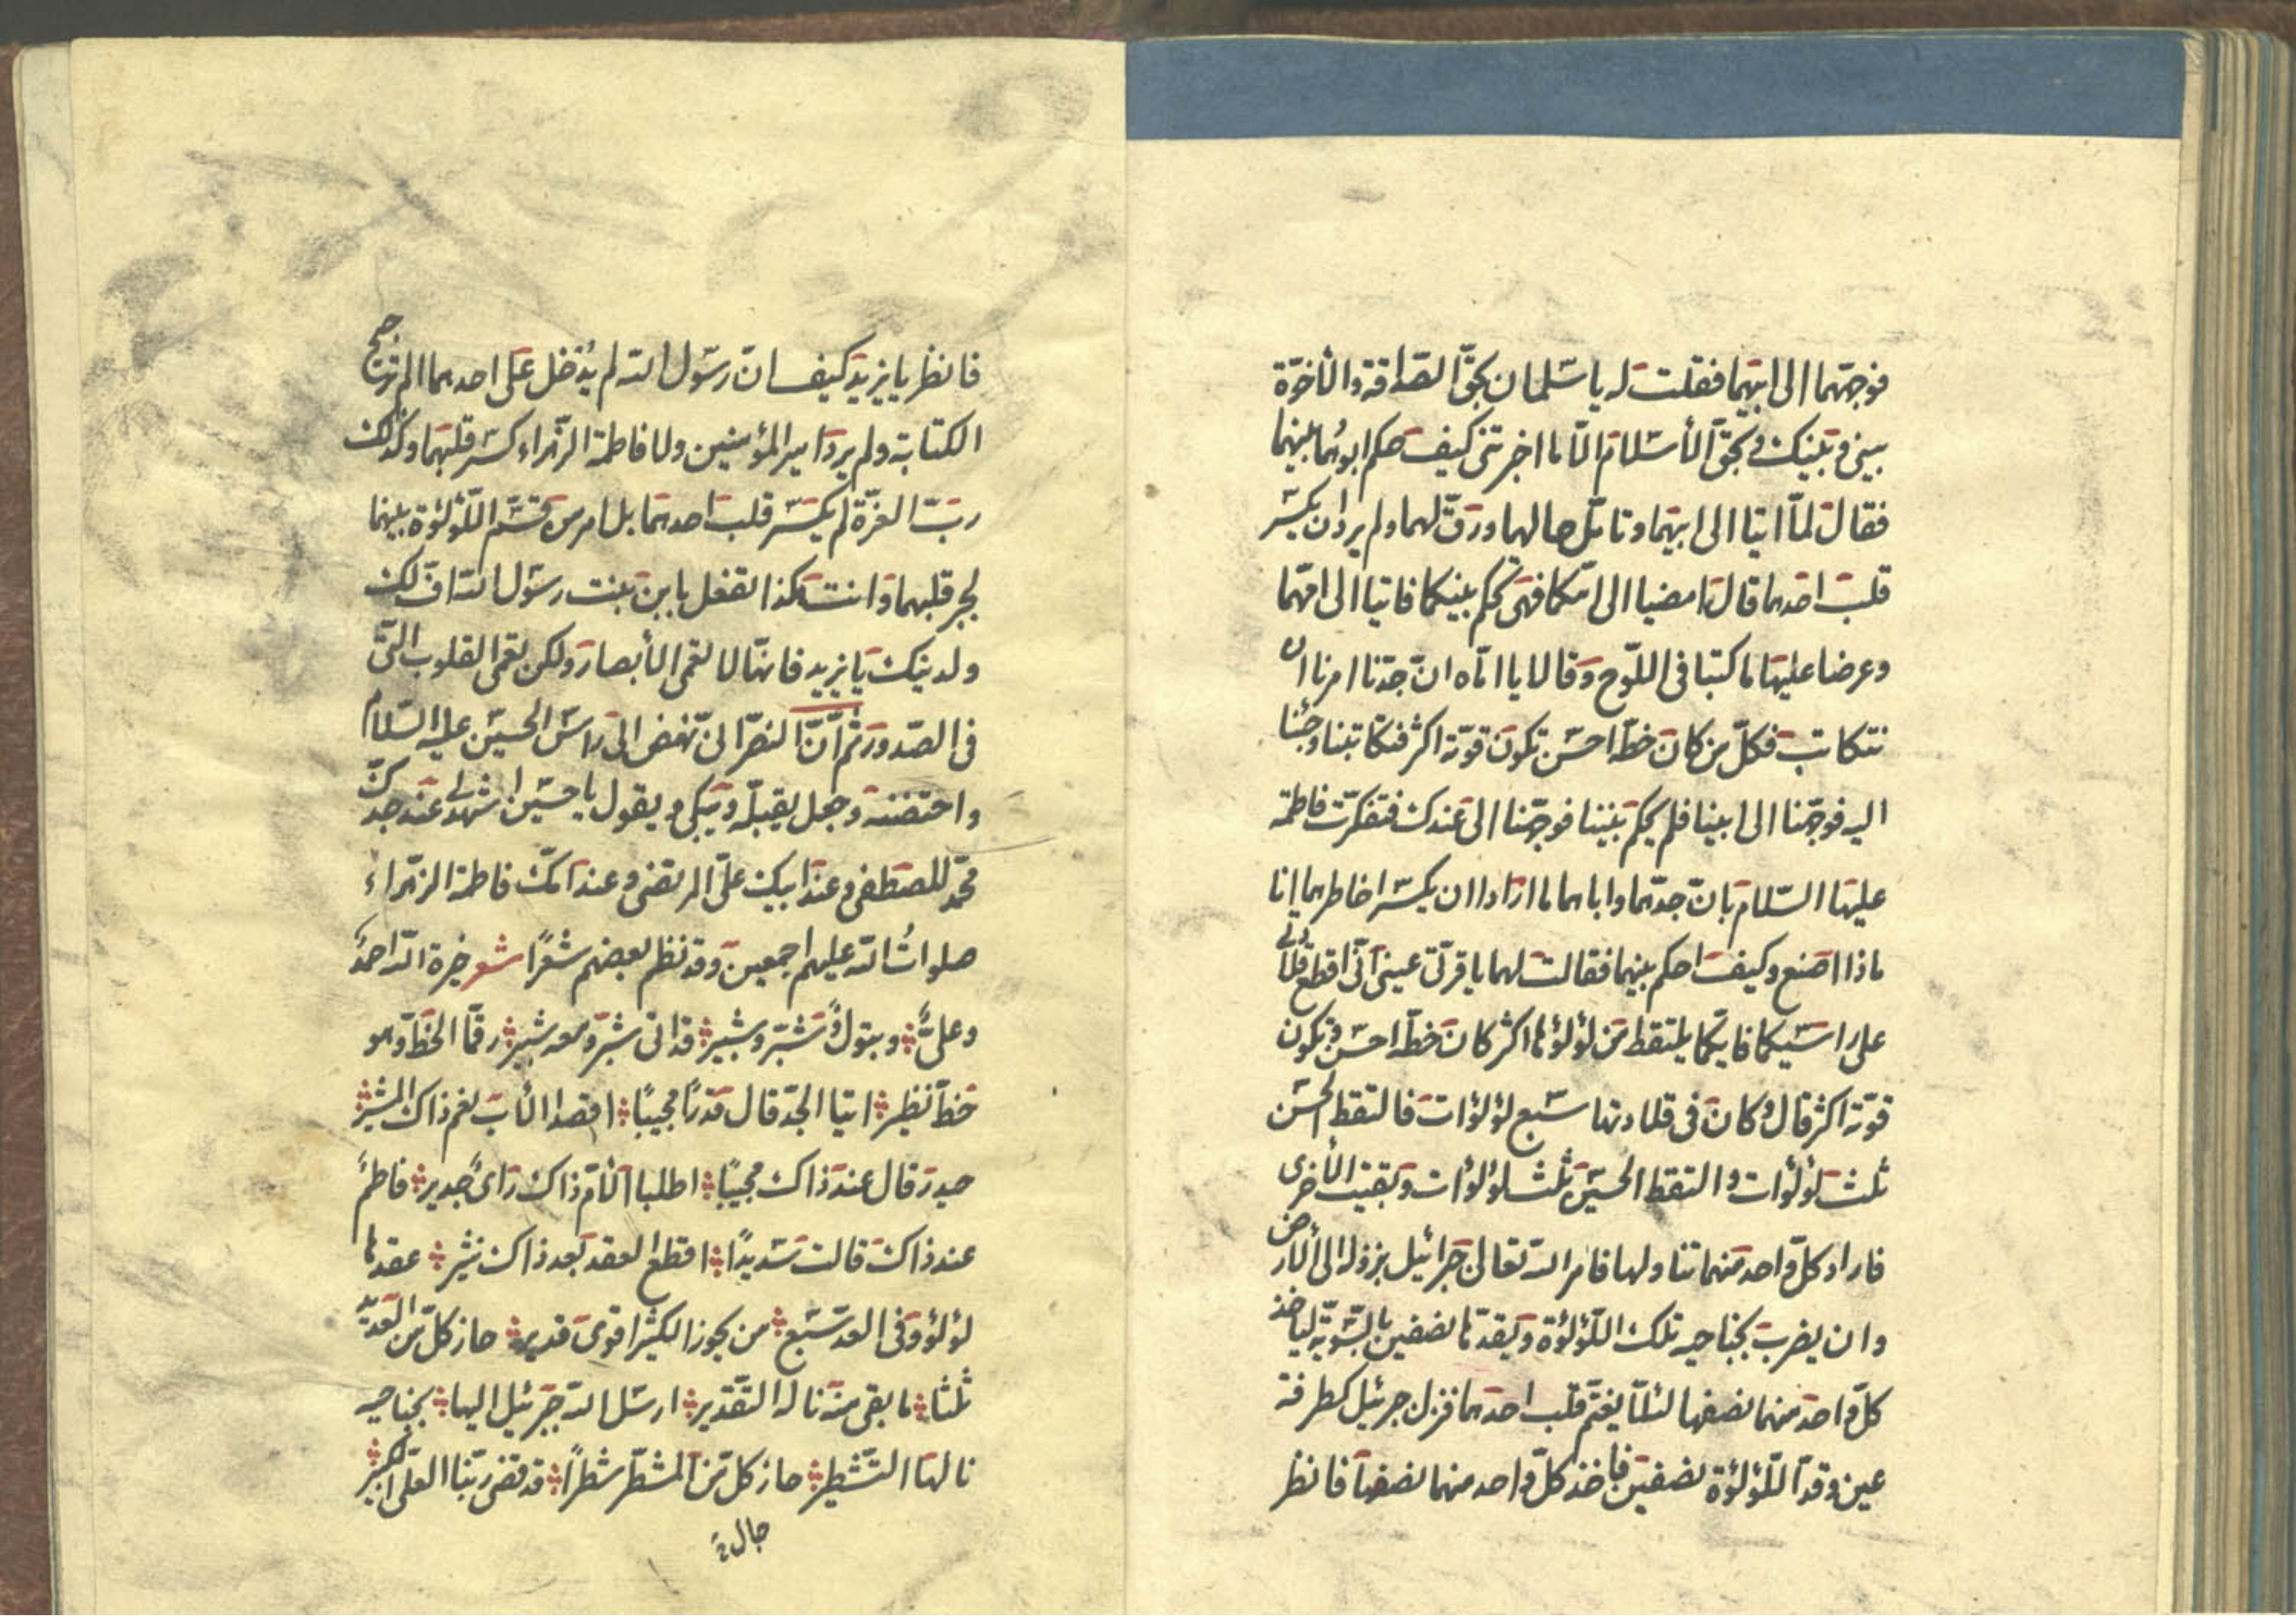 فوجههما الى ابيهما فقلت له يا سلمان بحق الصداقة والأخوة
بينى وبينك وبحق الأسلام الا ما اخبرتنى كيف حكم ابوهما بينهما
فقال لما اتيا الى ابيهما وتامل حالهما ورق لهما ولم يرد ان يكسر
قلب احدهما قال امضيا الى امكما فهى تحكم بينكما فاتيا الى امهما
وعرضا عليها ما كتبا فى اللوح وقالا يا اماه ان جدنا امرنا ان
نتكاتب فكل من كان خطه احسن تكون قوته اكثر فتكاتبنا وجئنا
اليه فوجهنا الى ابينا فلم يحكم بيننا فوجهنا الى عندك فتفكرت فاطمة
عليها السلام بان جدهما واباهما ما ارادا ان يكسرا خاطرهما انا
ماذا اصنع وكيف احكم بينهما فقالت لهما يا قرتى عينى انى اقطع قلادتى
على راسيكما فايكما يلتقط من لؤلؤها اكثر كان خطه احسن وتكون
قوته اكثر قال وكان فى قلادتها سبع لؤلؤات فالتقط الحسن
ثلث لؤلؤات والتقط الحسين ثلث لؤلؤات وبقيت الأخرى
فاراد كل واحد منهما تناولها فامر الله تعالى جبرائيل بنزوله الى الأرض
وان يضرب بجناحيه تلك اللؤلؤة ويقدها نصفين بالسوية لياخذ
كل واحد منهما نصفها لئلا يغتم قلب احدهما فنزل جبرئيل كطرفة
عين وقد اللؤلؤة نصفين فاخذ كل واحد منهما نصفها فانظر
فانظر يا يزيد كيف ان رسول الله لم يدخل على احدهما الم ترجيح
الكتابة ولم يرد امير المؤمنين ولا فاطمة الزهراء كسر قلبهما وكذلك
رب العزة لم يكسر قلب احدهما بل امر من قسم اللؤلؤة بينهما
لجبر قلبهما وانت هكذا تفعل بابن بنت رسول الله اف لك
ولدينك يا يزيد فانها لا تعمى الأبصار ولكن تعمى القلوب التى
فى الصدور ثم ان النصرانى نهض الى راس الحسين عليه السلام
واحتضنه وجعل يقبله ويبكى ويقول يا حسين اشهد لى عند جدك
محمد المصطفى وعند ابيك على المرتضى وعند امك فاطمة الزهراء
صلوات الله عليهم اجمعين وقد نظم بعضهم شعرا شعر خيرة الله احمد
وعلى وبتول وشبر وشبير قد اتى شبر ومعه شبير رقما الخط وهو
خط نظير اتيا الجد قال قدرا مجيبا اقصدا الأب نعم ذاك المشير
حيدر قال عند ذاك مجيبا اطلبا الأم ذاك راى جدير فاطم
عند ذاك قالت سديدا اقطع العقد بعد ذاك نثير عقدها
لؤلؤ وفى العد سبع من يحوز الكثير اقوى قدير حاز كل من العديد
ثلثا ما بقى منه ناله التقدير ارسل الله جبرئيل اليها بجناحيه
نالها التشطير حاز كل من المشطر شطرا قد قضى ربنا العلى الكبير
جال